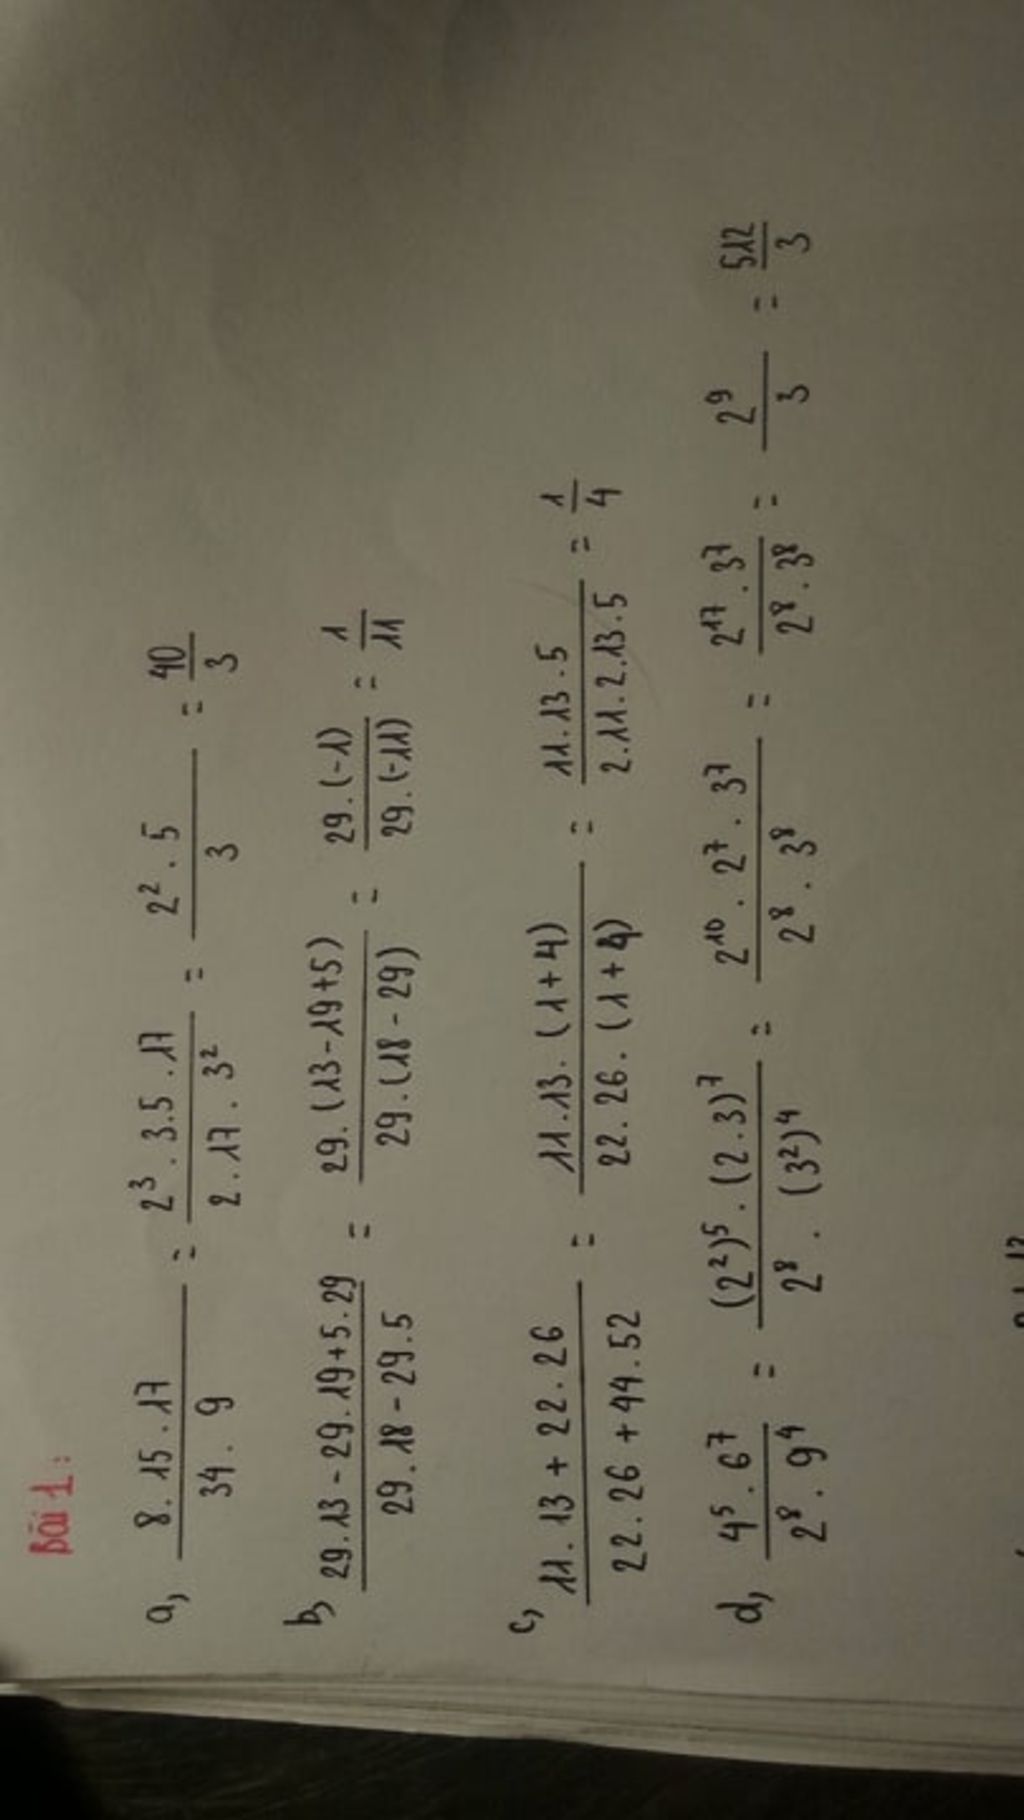 Bài 1:
a, \frac{8.15.17}{34.9} = \frac{2^3.3.5.17}{2.17.3^2} = \frac{2^2.5}{3} = \frac{40}{3}
b, \frac{29.13-29.19+5.29}{29.18-29.5} = \frac{29.(13-19+5)}{29.(18-29)} = \frac{29.(-1)}{29.(-11)} = \frac{1}{11}
c, \frac{11.13+22.26}{22.26+44.52} = \frac{11.13.(1+4)}{22.26.(1+4)} = \frac{11.13.5}{2.11.2.13.5} = \frac{1}{4}
d, \frac{4^5.6^7}{2^8.9^4} = \frac{(2^2)^5.(2.3)^7}{2^8.(3^2)^4} = \frac{2^{10}.2^7.3^7}{2^8.3^8} = \frac{2^{17}.3^7}{2^8.3^8} = \frac{2^9}{3} = \frac{512}{3}